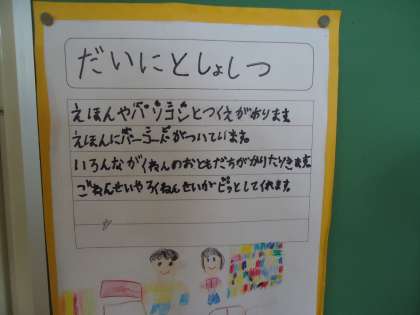 だいにとしょしつ
えほんやパソコンとつくえがあります
えほんにバーコードがついています。
いろんながくねんのおともだちがかりたりきます。
ごねんせいやろくねんせいがピッとしてくれます。